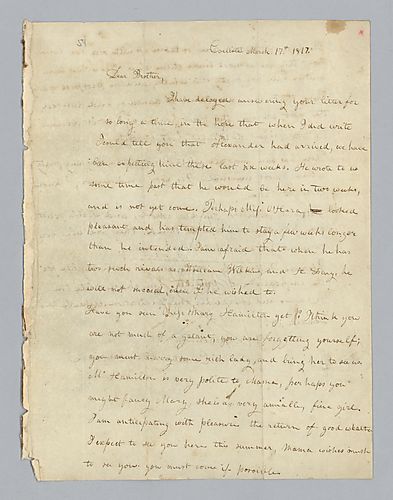 51
Carlisle March 17th 1812.
Dear Brother,
I have delayed answering your letter for
so long a time, in the hope that when I did write
I could tell you that Alexander had arrived, we have
been expecting him these last six weeks. He wrote to us
some time past that he would be here in two weeks,
and is not yet come. Perhaps Miss looked
pleasant and has tempted him to stay a few weeks longer
than he intended. I am afraid that when he has
two such rivals as Wilkins, and he
will not succeed, even if he wished to.
Have you seen Miss Mary Hamilton yet? I think you
are not much of a galant, you are forgetting yourself,
you must marry some rich lady, and bring her to see us
Mr Hamilton is very polite to Mama, perhaps you
might fancy Mary, she is a very amiable, fine girl.
I am anticating with pleasure the return of good weather
I expect to see you here this summer, Mama wishes much
to see you. you must come if possible